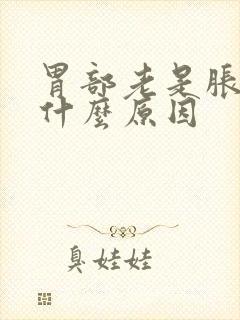 胃部老是脹
什麼原因
臭娃娃